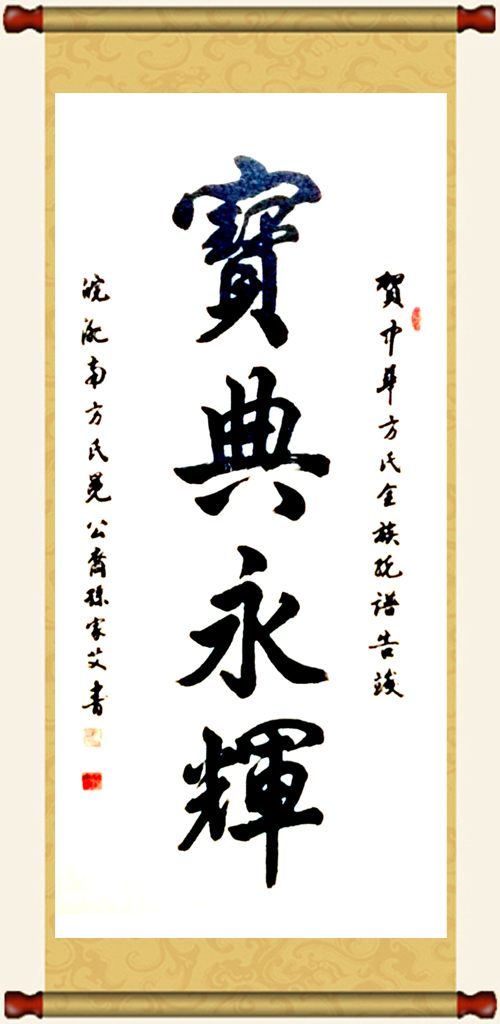 賀中華方氏全族統譜告竣
寶典永輝
皖淝南方氏冕公裔孫家艾書